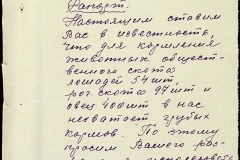 Рапорт.
Настоящим ставим
Вас в известность,
что для кормления
животных общест-
венного скота
лошадей 54 шт.
рог. скота 97 шт и
овец 400 шт в нас
нехватает грубых
кормов. По этому
просим Вашего рас-